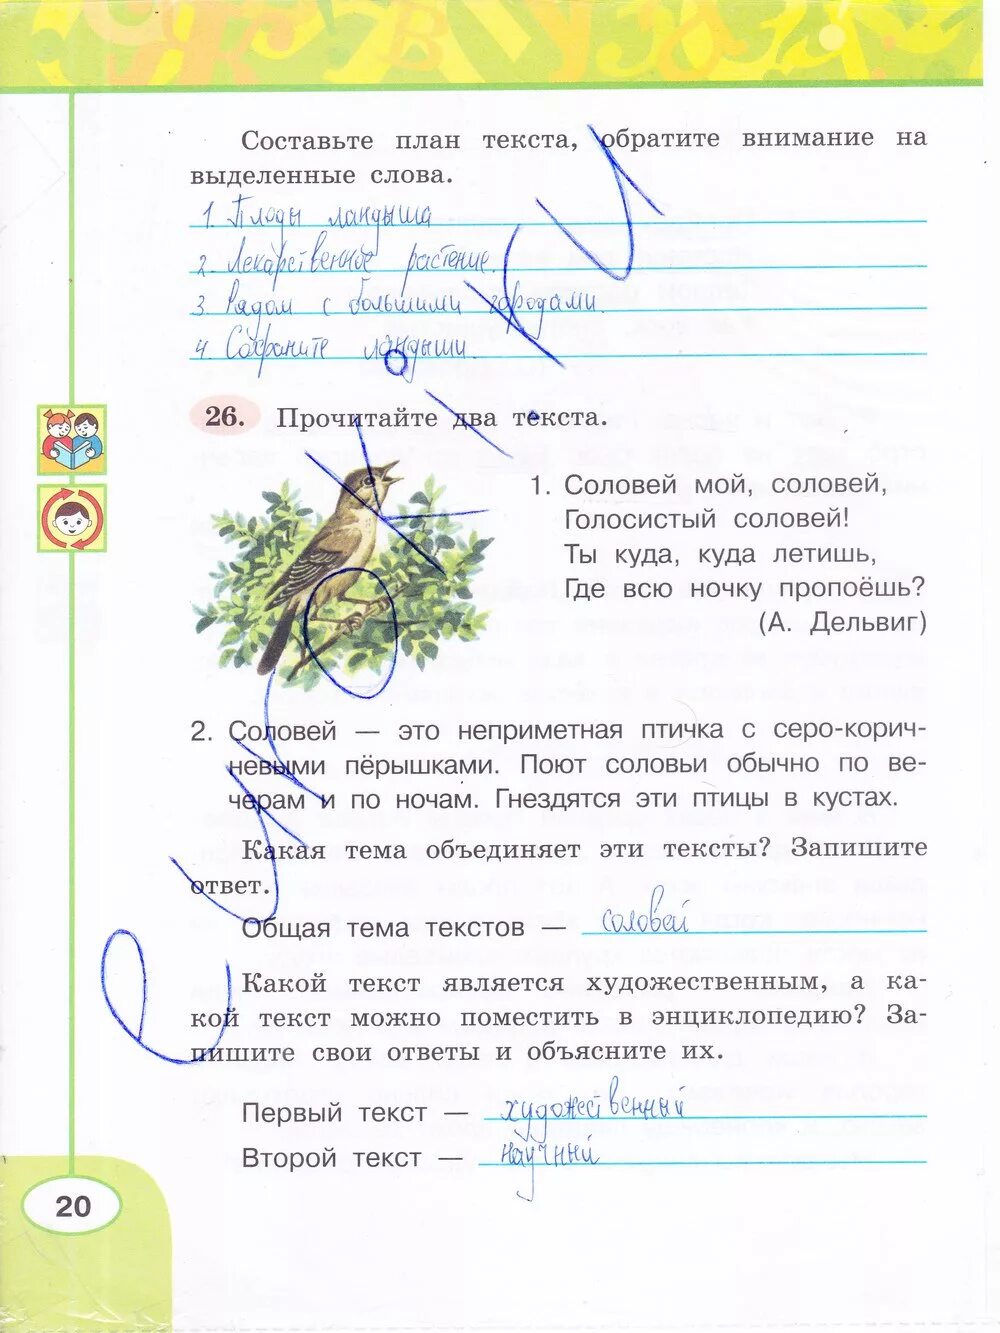 Составьте план текста, обратите внимание на
выделенные слова.
1. Плоды ландыша
2. Лекарственное растение.
3. Рядом с большими городами.
4. Сохраните ландыши.
26. Прочитайте два текста.
1. Соловей мой, соловей,
Голосистый соловей!
Ты куда, куда летишь,
Где всю ночку пропоёшь?
(А. Дельвиг)
2. Соловей — это неприметная птичка с серо-корич-
невыми пёрышками. Поют соловьи обычно по ве-
черам и по ночам. Гнездятся эти птицы в кустах.
Какая тема объединяет эти тексты? Запишите
ответ.
Общая тема текстов — соловей
Какой текст является художественным, а ка-
кой текст можно поместить в энциклопедию? За-
пишите свои ответы и объясните их.
Первый текст — художественный
Второй текст — научный
20